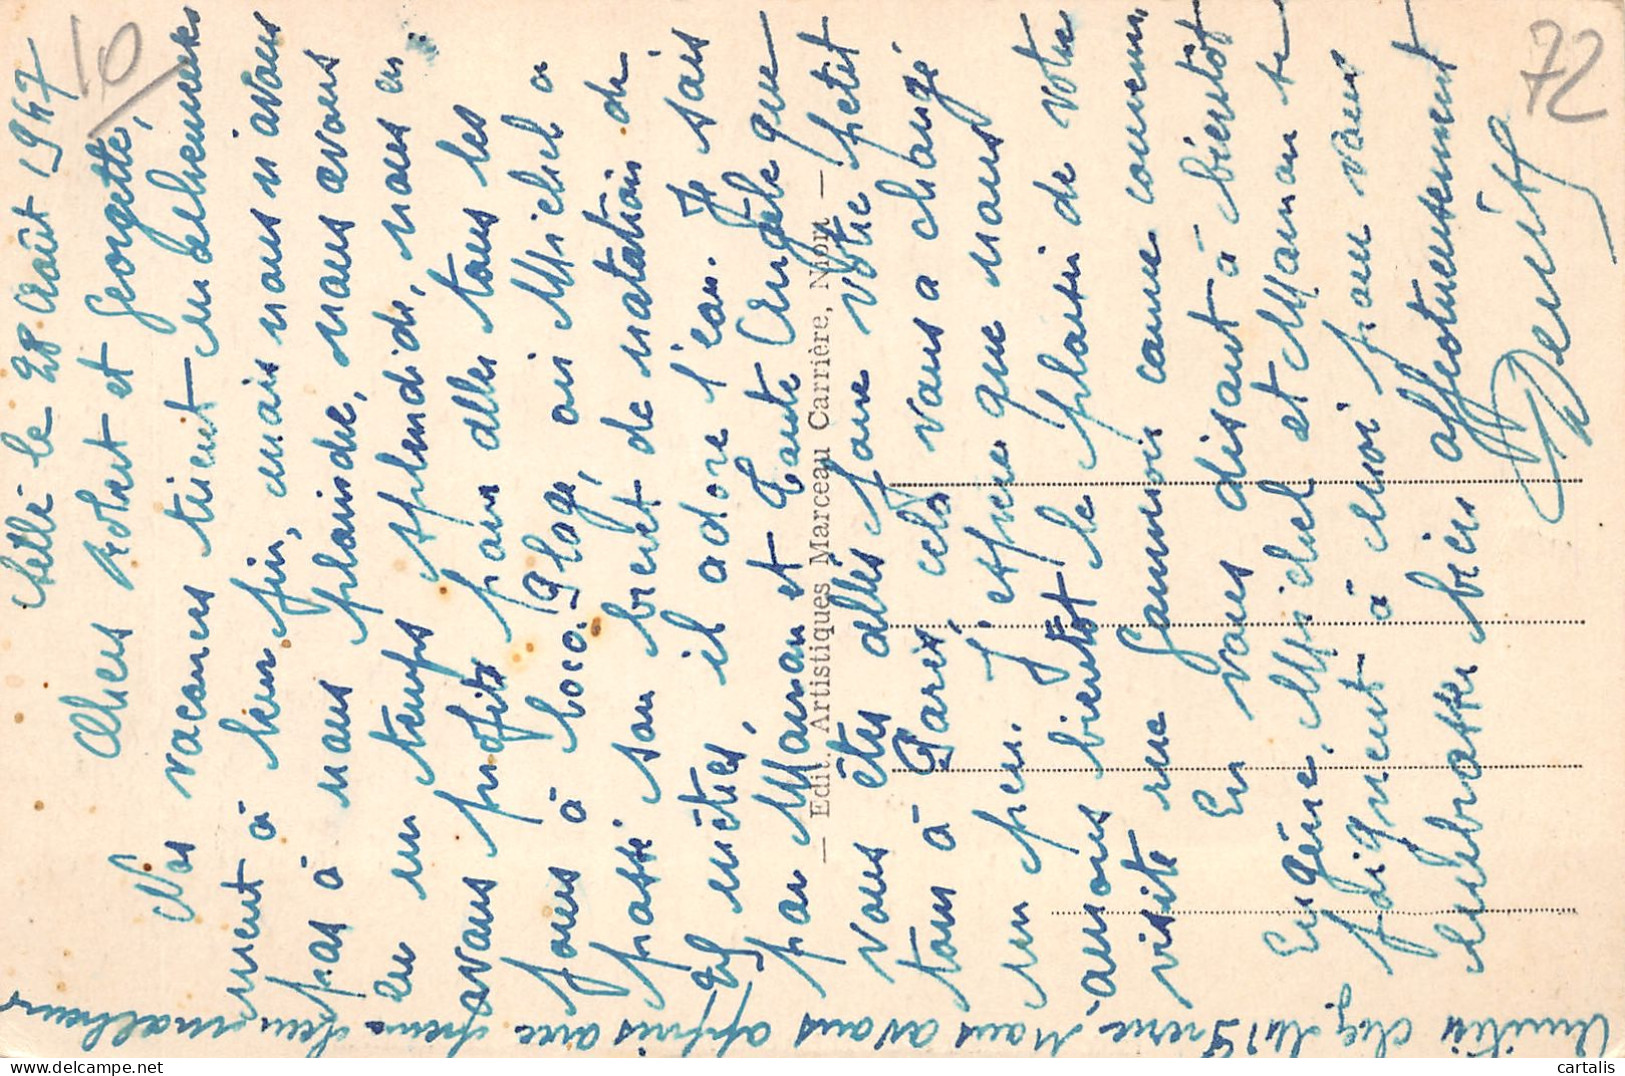 Celle le 28 Août 1947
Chers Robert et Georgette,
Nos vacances tirent malheureuse
ment à leur fin, mais nous n'avons
pas à nous plaindre, nous avons
eu un temps splendide, nous en
avons profité pour aller tous les
jours à la Plage, où Michel a
passé son brevet de natation de
25 mètres, il adore l'eau. Je sais
par Maman et Tante Angèle que
vous êtes allés faire votre petit
tour à Paris, cela vous a changé
un peu. J'espère que nous
aurons bientôt le plaisir de votre
visite rue comme convenu
En vous disant à bientôt
Eugène, Michel et Maman se
joignent à moi pour vous
embrasser bien affectueusement
Denise
Amitiés de Mr Nous avons appris avec peine leur malheur
— Edit. Artistiques Marceau Carrière, Niort —
10
72
cartalis
delcampe.net